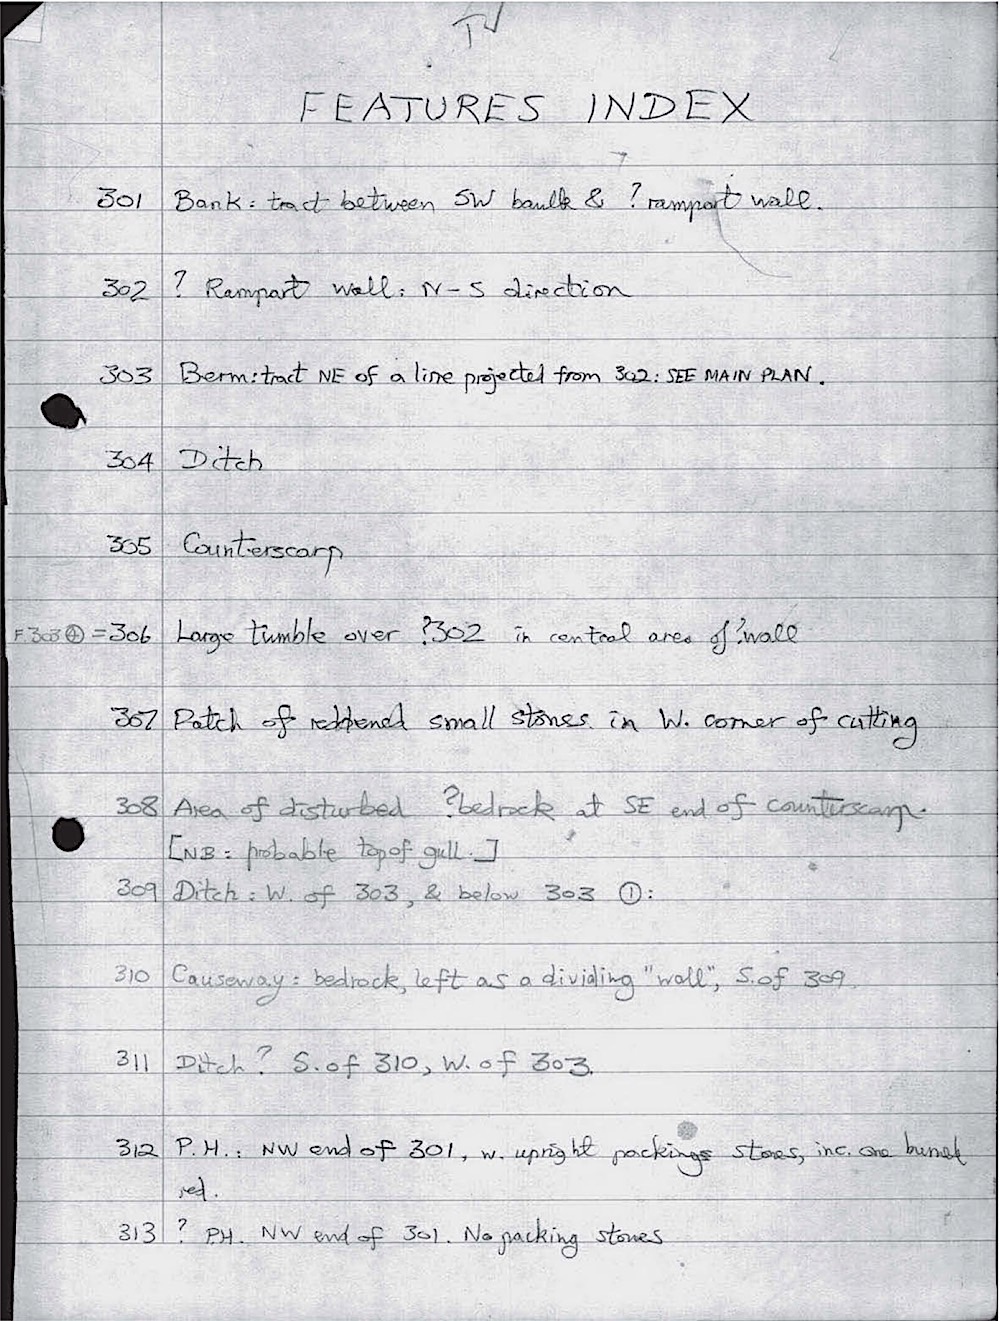 TV
FEATURES INDEX
301 Bank: tract between SW baulk & ? rampart wall.
302 ? Rampart wall: N-S direction
303 Berm: tract NE of a line projected from 302: SEE MAIN PLAN.
304 Ditch
305 Counterscarp
F.303④ = 306 Large tumble over ?302 in central area of ?wall
307 Patch of reddened small stones in W. corner of cutting
308 Area of disturbed ?bedrock at SE end of counterscarp.
[NB: probable top of gull.]
309 Ditch: W. of 303, & below 303 ①:
310 Causeway: bedrock, left as a dividing "wall", S. of 309.
311 Ditch? S. of 310, W. of 303.
312 P.H.: NW end of 301, w. upright packings stones, inc. one burned
red.
313 ? PH. NW end of 301. No packing stones